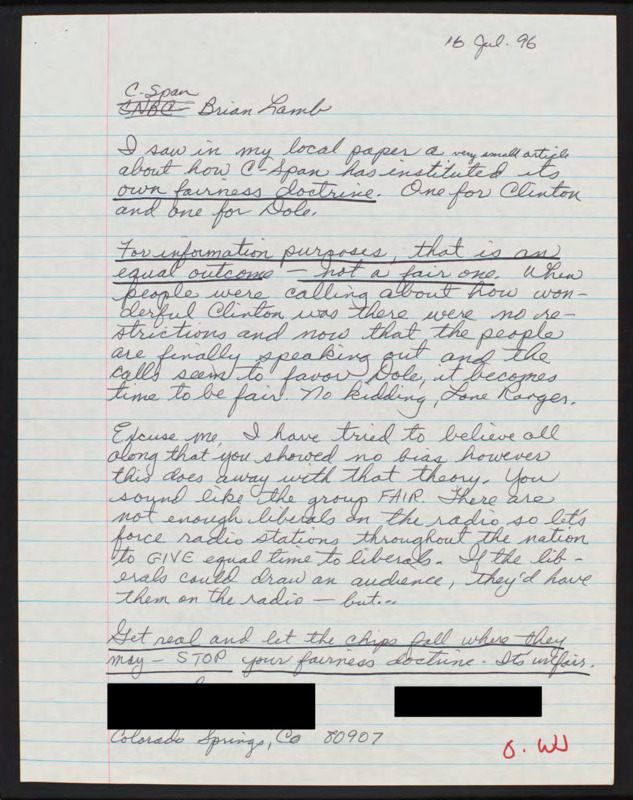 16 Jul. 96
C-Span
CNBC - Brian Lamb
I saw in my local paper a very small article
about how C-Span has instituted its
own fairness doctrine. One for Clinton
and one for Dole.
For information purposes, that is an
equal outcome - not a fair one. When
people were calling about how won-
derful Clinton was there were no re-
strictions and now that the people
are finally speaking out and the
calls seem to favor Dole, it becomes
time to be fair. No kidding, Lone Ranger.
Excuse me, I have tried to believe all
along that you showed no bias however
this does away with that theory. You
sound like the group FAIR. There are
not enough liberals on the radio so let's
force radio stations throughout the nation
to GIVE equal time to liberals. If the lib-
erals could draw an audience, they'd have
them on the radio - but...
Get real and let the chips fall where they
may - STOP your fairness doctrine. It's unfair.
Colorado Springs, Co 80907